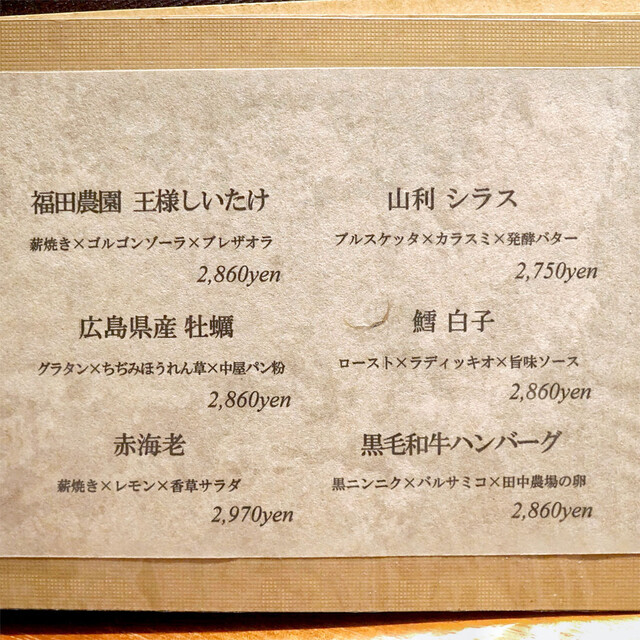 福田農園 王様しいたけ
薪焼き×ゴルゴンゾーラ×ブレザオラ
2,860yen
広島県産 牡蠣
グラタン×ちぢみほうれん草×中屋パン粉
2,860yen
赤海老
薪焼き×レモン×香草サラダ
2,970yen
山利 シラス
ブルスケッタ×カラスミ×発酵バター
2,750yen
鱈 白子
ロースト×ラディッキオ×旨味ソース
2,860yen
黒毛和牛ハンバーグ
黒ニンニク×バルサミコ×田中農場の卵
2,860yen